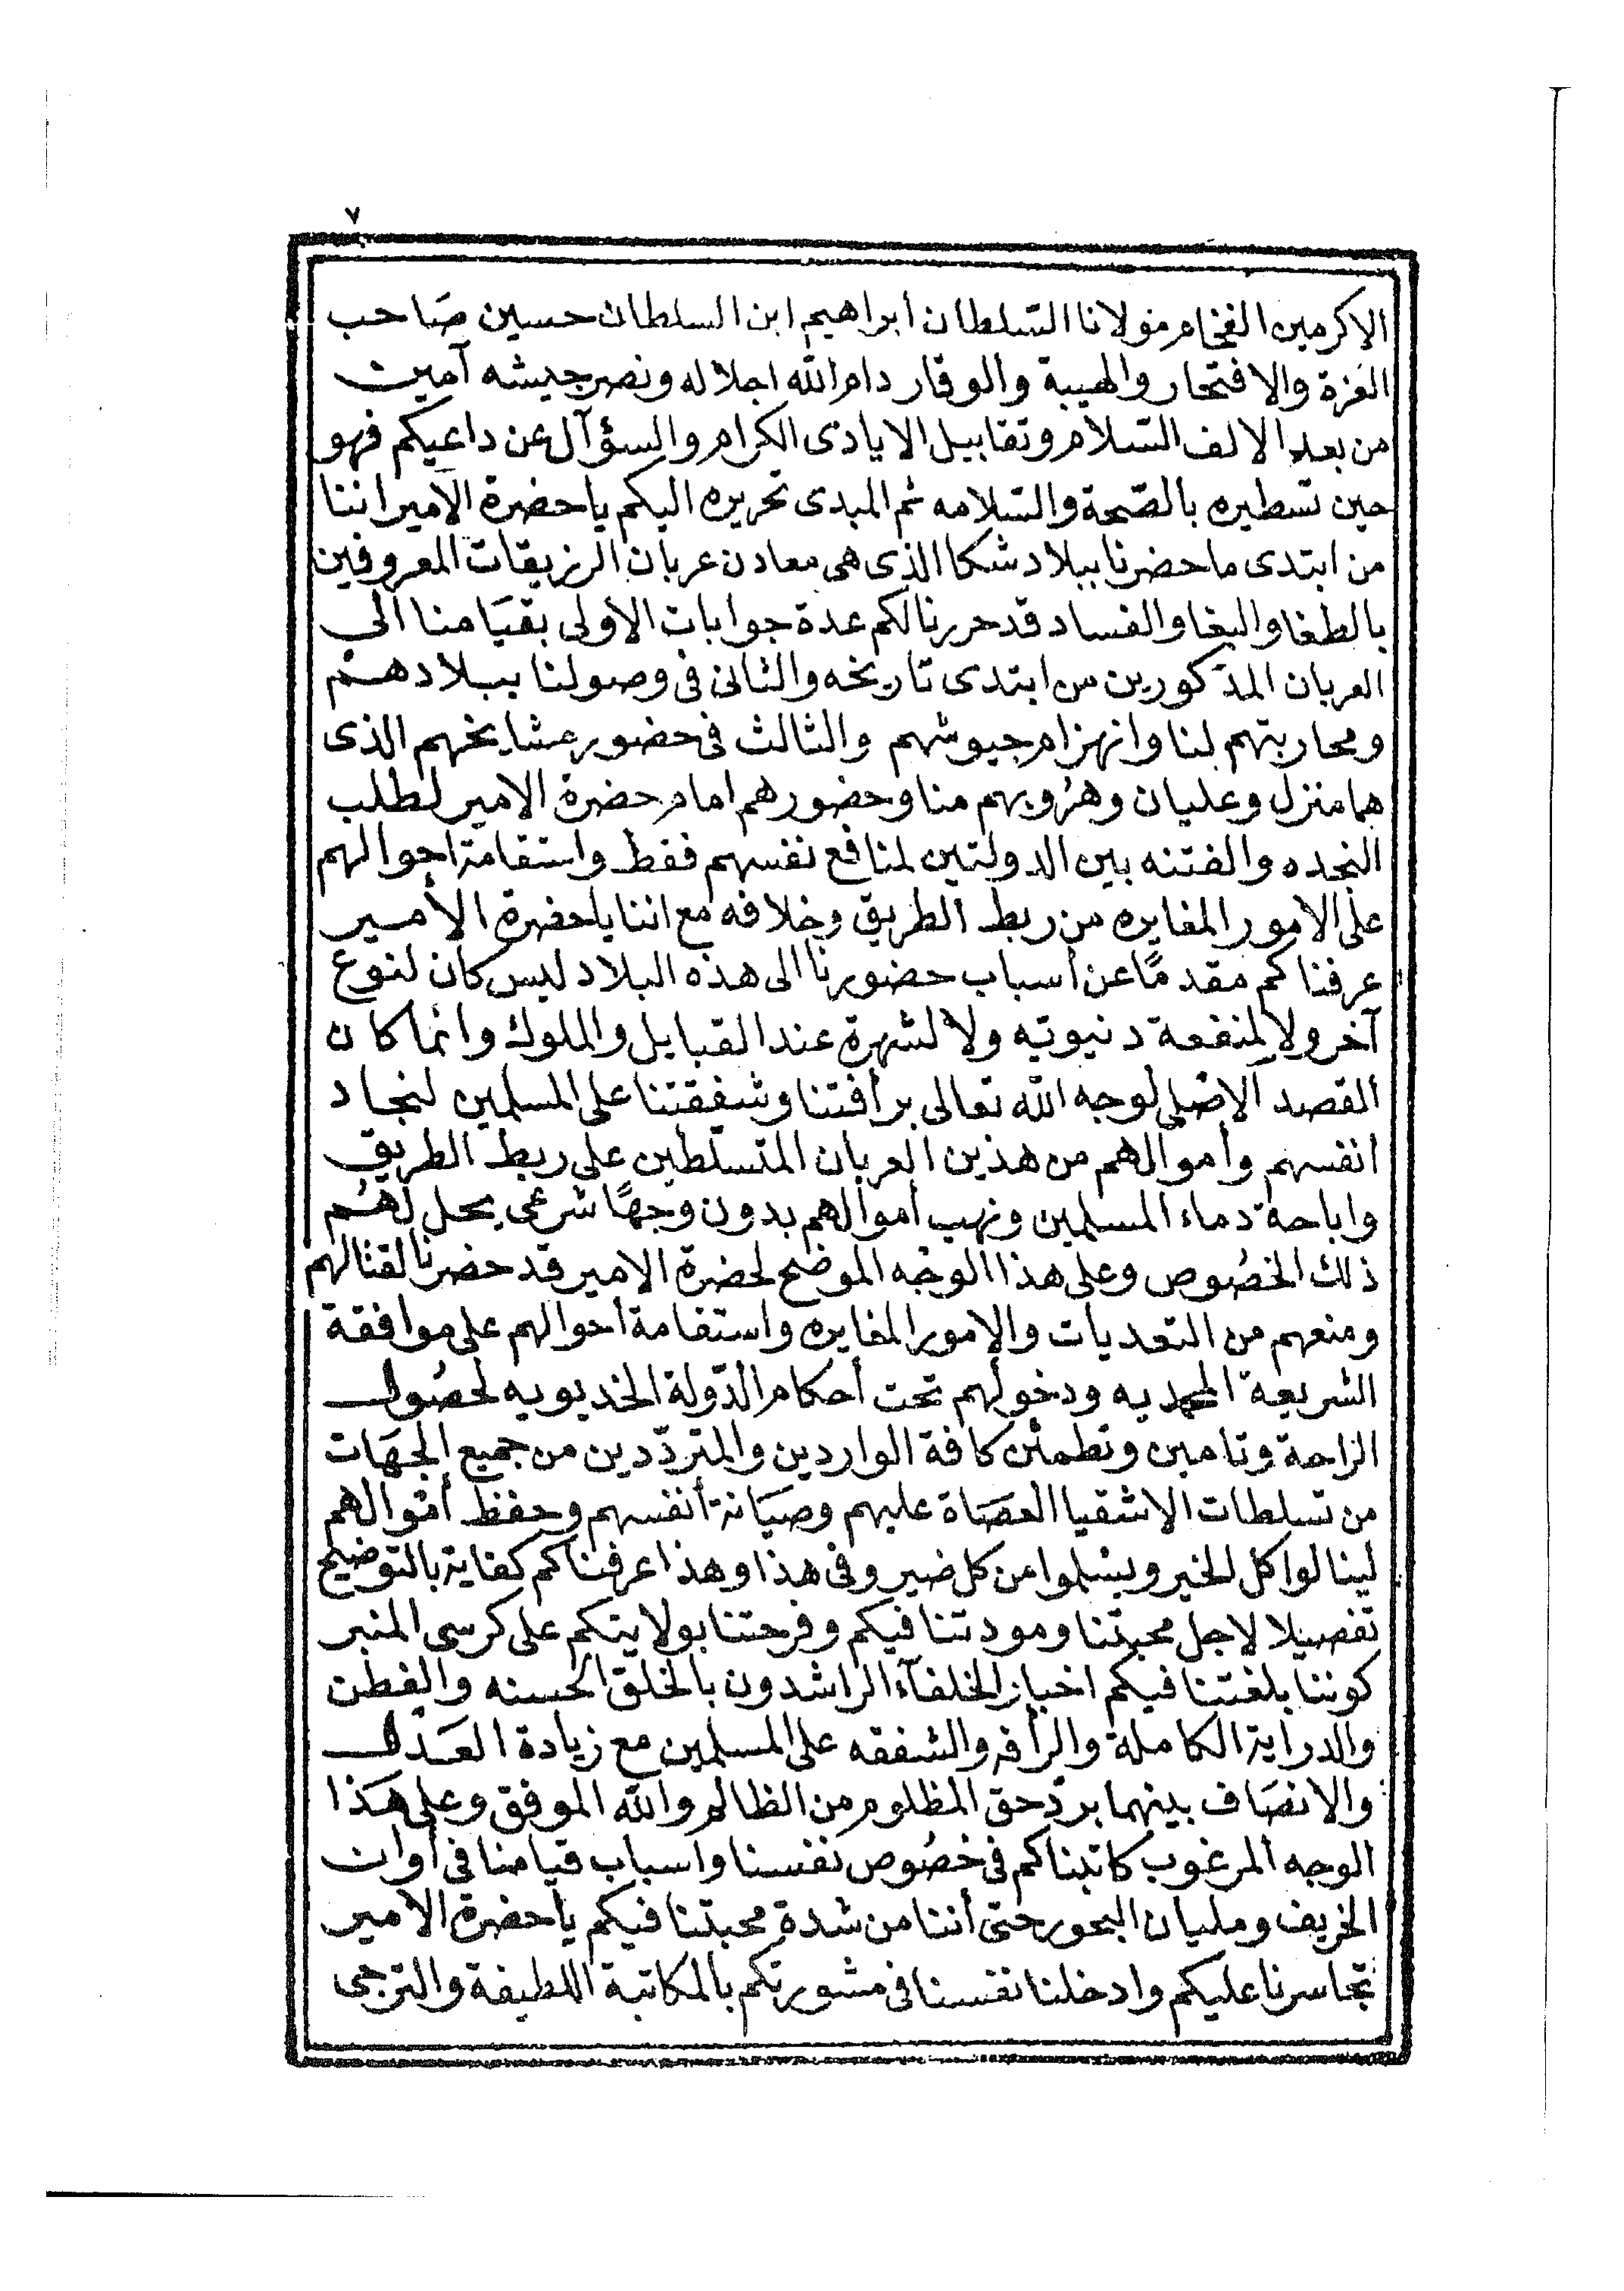 ٧
الاكرمين الفخام مولانا السلطان ابراهيم ابن السلطان حسين صاحب
العزة والافتخار والهيبة والوقار دام الله اجلاله ونصر جيشه آمين
من بعد الالف السلام وتقابيل الايادى الكرام والسؤآل عن داعيكم فهو
حين تسطيره بالصحة والسلامه ثم المبدى تحريره اليكم ياحضرة الامير اننا
من ابتدى ما حضرنا ببلاد شكا الذى هى معادن عربان الرزيقات المعروفين
بالطغا والبغا والفساد قد حررنا لكم عدة جوابات الأولى بقيامنا الى
العربان المذكورين من ابتدى تاريخه والثانى فى وصولنا ببلادهم
ومحاربتهم لنا وانهزام جيوشهم والثالث فى حضور مشايخهم الذى
هما منزل وعليان وهروبهم منا وحضورهم امام حضرة الامير لطلب
النجده والفتنه بين الدولتين لمنافع نفسهم فقط واستقامة احوالهم
على الامور المغايره من ربط الطريق وخلافه مع اننا ياحضرة الأمير
عرفناكم مقدمًا عن أسباب حضورنا الى هذه البلاد ليس كان لنوع
آخر ولا لمنفعة دنيوتيه ولا لشهرة عند القبايل والملوك وانما كان
القصد الاصلى لوجه الله تعالى برأفتنا وشفقتنا على المسلمين لنجاد
انفسهم وأموالهم من هذين العربان المتسلطين على ربط الطريق
واباحة دماء المسلمين ونهب أموالهم بدون وجهًا شرعى يحل لهم
ذلك الخصوص وعلى هذا الوجه الموضح لحضرة الامير قد حضرنا لقتالهم
ومنعهم من التعديات والامور المغايره واستقامة أحوالهم على موافقة
الشريعة المحمديه ودخولهم تحت أحكام الدولة الخديويه لحصول
الراحة وتامين وتطمئن كافة الواردين والمتردّدين من جميع الجهات
من تسلطات الاشقيا العصاة عليهم وصيانة أنفسهم وحفظ أموالهم
لينالوا كل الخير ويسلموا من كل ضير وفى هذا وهذا عرفناكم كفاية بالتوضيح
تفصيلا لاجل محبتنا ومودتنا فيكم وفرحتنا بولايتكم على كرسى المنبر
كوننا بلغتنا فيكم اخبار الخلفآء الراشدون بالخلق الحسنه والفطن
والدراية الكاملة والرأفه والشفقه على المسلمين مع زيادة العدل
والانصاف بينهما بردّ حق المظلوم من الظالم والله الموفق وعلى هذا
الوجه المرغوب كاتبناكم فى خصوص نفسنا واسباب قيامنا فى أوان
الخريف ومليان البحور حتى أننا من شدة محبتنا فيكم ياحضرة الامير
تجاسرنا عليكم وادخلنا نفسنا فى مشورتكم بالمكاتبة اللطيفة والترجى